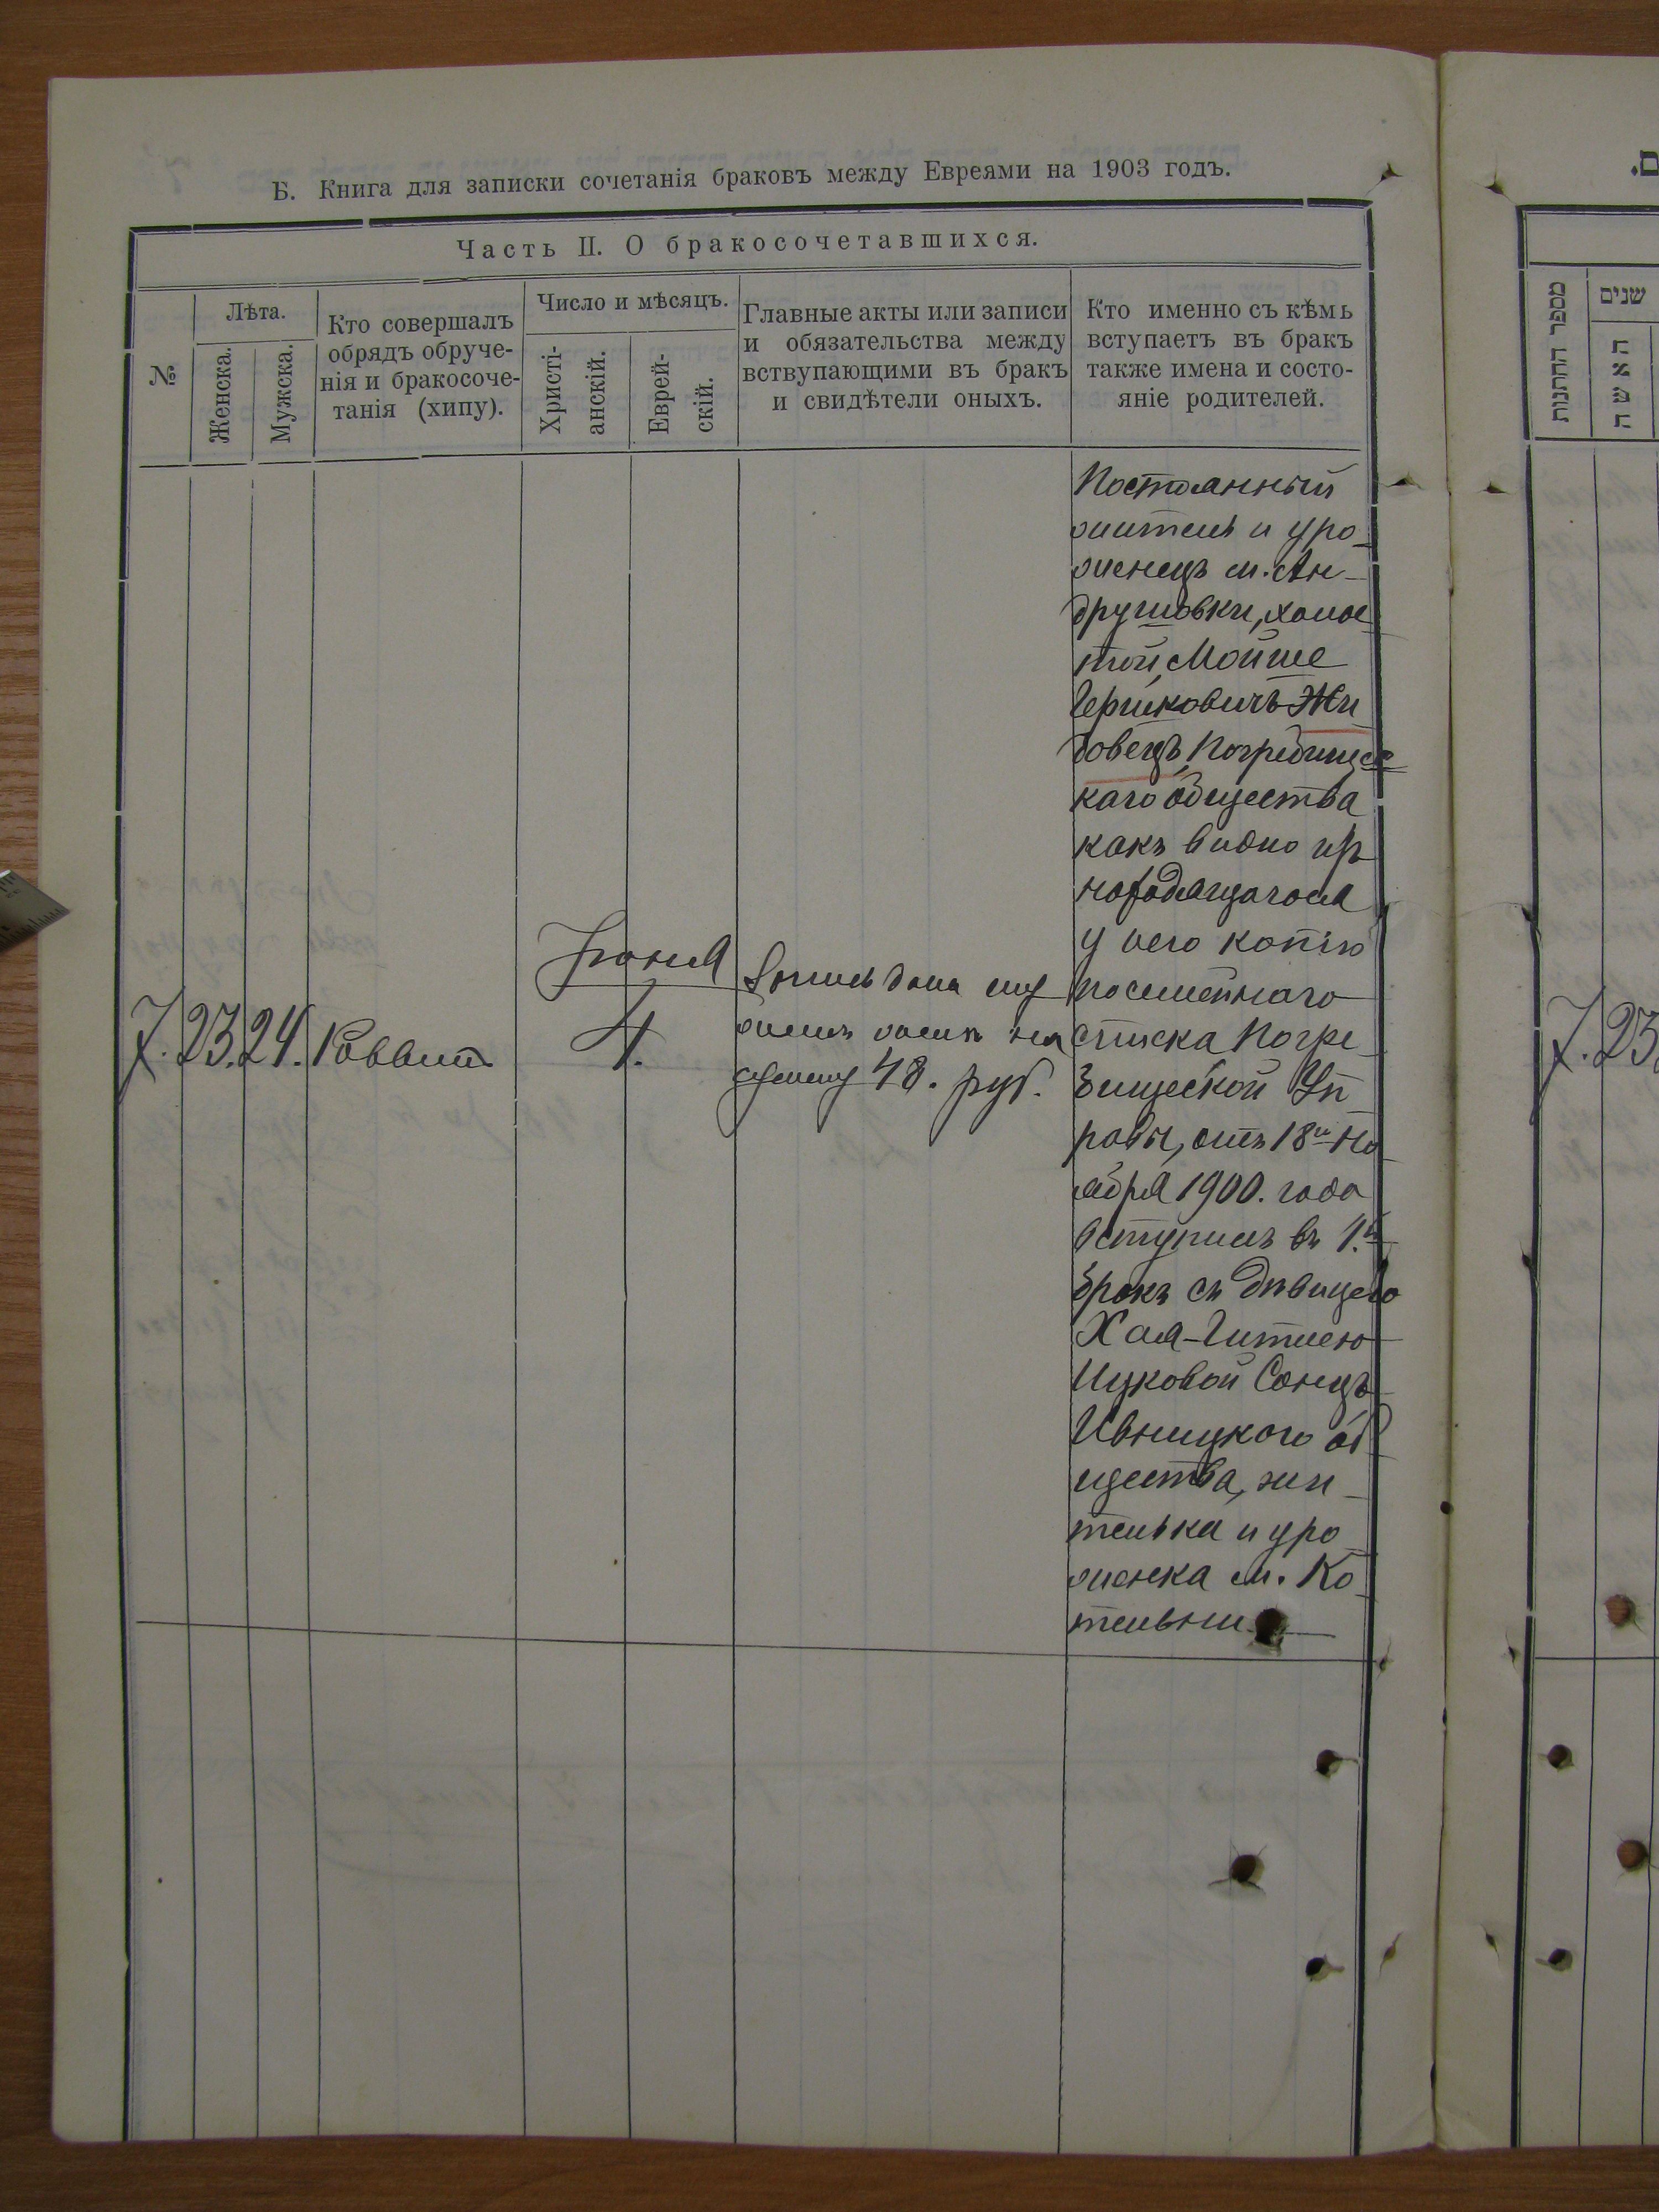 Б. Книга для записки сочетанія браковъ между Евреями на 1903 годъ.
Часть II. О бракосочетавшихся.
№
Лѣта.
Женска.
Мужска.
Кто совершалъ
обрядъ обруче-
нія и бракосоче-
танія (хипу).
Число и мѣсяцъ.
Христі-
анскій.
Еврей-
скій.
Главные акты или записи
и обязательства между
вствупающими въ бракъ
и свидѣтели оныхъ.
Кто именно съ кѣмъ
вступаетъ въ бракъ
также имена и состо-
яніе родителей.
7. 23. 24. Раввинъ
Іюня
4.
Запись дана му
жемъ женѣ на
сумму 48. руб.
Постоянный
житель и уро-
женецъ м. Ан-
друшовки, холос
той, Мойше
Гершковичъ Жи
товецъ, Погребищес
каго общества
какъ видно изъ
находящагося
у него копію
посемейнаго
списка Погре-
бищеской Уп
равы, отъ 18го Но
ября 1900. года
вступилъ въ 1.й
бракъ съ дѣвицею
Хая-Гитлею
Ицковой Сонцъ
Ивницкого об
щества, жи-
телька и уро
женка м. Ко
тельни
מספר החתונות
שנים
האשה
7. 23.